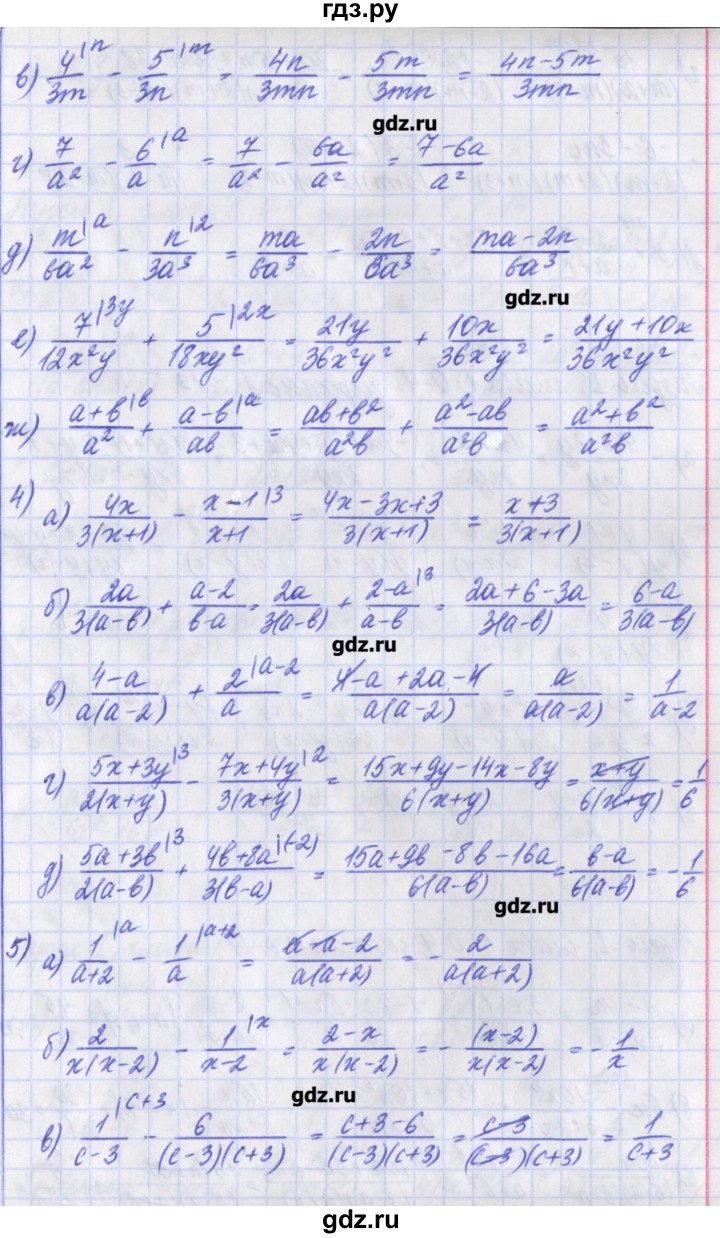 гдз.ру
в) 4|n/3m − 5|m/3n = 4n/3mn − 5m/3mn = 4n−5m/3mn
gdz.ru
г) 7/a² − 6|a/a = 7/a² − 6a/a² = 7−6a/a²
д) m|a/6a² − n|2/3a³ = ma/6a³ − 2n/6a³ = ma−2n/6a³
gdz.ru
е) 7|3y/12x²y + 5|2x/18xy² = 21y/36x²y² + 10x/36x²y² = 21y+10x/36x²y²
ж) a+b|b/a² + a−b|a/ab = ab+b²/a²b + a²−ab/a²b = a²+b²/a²b
4) а) 4x/3(x+1) − x−1|3/x+1 = 4x−3x+3/3(x+1) = x+3/3(x+1)
б) 2a/3(a−b) + a−2/b−a = 2a/3(a−b) + 2−a|3/a−b = 2a+6−3a/3(a−b) = 6−a/3(a−b)
gdz.ru
в) 4−a/a(a−2) + 2|a−2/a = 4−a+2a−4/a(a−2) = a/a(a−2) = 1/a−2
г) 5x+3y|3/2(x+y) − 7x+4y|2/3(x+y) = 15x+9y−14x−8y/6(x+y) = x+y/6(x+y) = 1/6
д) 5a+3b|3/2(a−b) + 4b+8a|(−2)/3(b−a) = 15a+9b−8b−16a/6(a−b) = b−a/6(a−b) = −1/6
gdz.ru
5) а) 1|a/a+2 − 1|a+2/a = a−a−2/a(a+2) = −2/a(a+2)
б) 2/x(x−2) − 1|x/x−2 = 2−x/x(x−2) = −(x−2)/x(x−2) = −1/x
gdz.ru
в) 1|c+3/c−3 − 6/(c−3)(c+3) = c+3−6/(c−3)(c+3) = c−3/(c−3)(c+3) = 1/c+3
gdz.ru